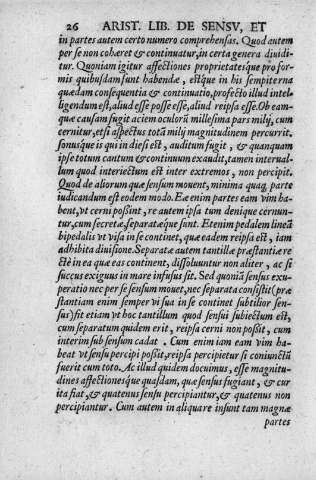 26 ARIST. LIB. DE SENSV, ET
in partes autem certo numero comprehensas. Quod autem
per se non cohæret & continuatur, in certa genera diuidi
tur. Quoniam igitur affectiones proprietatesque pro for-
mis quibusdam sunt habendæ, estque in his sempiterna
quædam consequentia & continuatio, profecto illud intel-
ligendum est, aliud esse posse esse, aliud reipsa esse. Ob eam-
que causam fugit aciem oculorũ millesima pars milij, cum
cernitur, etsi aspectus totã milij magnitudinem percurrit.
sonusque is qui in diesi est, auditum fugit, & quanquam
ipse totum cantum & continuum exaudit, tamen interual-
lum quod interiectum est inter extremos, non percipit.
Quod de aliorum quæ sensum mouent, minima quaq; parte
iudicandum est eodem modo. Eæ enim partes eam vim ha-
bent, vt cerni possint, re autem ipsa tum denique cernun-
tur, cum secretæ, separatæque sunt. Etenim pedalem lineã
bipedalis vt visa in se continet, quæ eadem reipsa est, iam
adhibita diuisione. Separatæ autem tantillæ præstantiæ re
ctè in ea quæ eas continent, dissoluuntur non aliter, ac si
succus exiguus in mare infusus sit. Sed quoniã sensus exu-
peratio nec per se sensum mouet, nec separata consistit (præ
stantiam enim semper vi sua in se continet subtilior sen-
sus) fit etiam vt hoc tantillum quod sensui subiectum est,
cum separatum quidem erit, reipsa cerni non possit, cum
interim sub sensum cadat. Cum enim iam eam vim ha-
beat vt sensu percipi possit, reipsa percipietur si coniunctũ
fuerit cum toto. Ac illud quidem docuimus, esse magnitu-
dines affectionesque quasdam, quæ sensus fugiant, & cur
ita fiat, & quatenus sensu percipiantur, & quatenus non
percipiantur. Cum autem in aliqua re insunt tam magnæ
partes